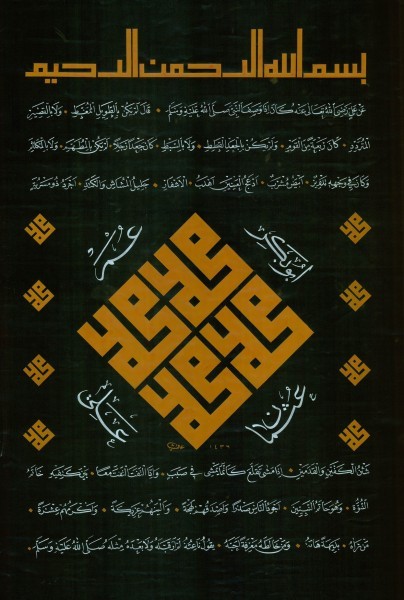 بسم الله الرحمن الرحيم
عن علي رضي الله تعالى عنه كان اذا وصف النبي صلى الله عليه وسلم قال لم يكن بالطويل الممغط ولا بالقصير
المتردد كان ربعة من القوم ولم يكن بالجعد القطط ولا بالسبط كان جعدا رجلا ولم يكن بالمطهم ولا بالمكلثم
وكان في وجهه تدوير ابيض مشرب ادعج العينين اهدب الاشفار جليل المشاش والكتد اجرد ذو مسربة
ابو بكر عمر
محمد محمد محمد محمد
عثمان علي
شثن الكفين والقدمين اذا مشى تقلع كانما يمشي في صبب واذا التفت التفت معا بين كتفيه خاتم
النبوة وهو خاتم النبيين اجود الناس صدرا واصدقهم لهجة والينهم عريكة واكرمهم عشرة
من رآه بديهة هابه ومن خالطه معرفة احبه يقول ناعته لم ار قبله ولا بعده مثله صلى الله عليه وسلم